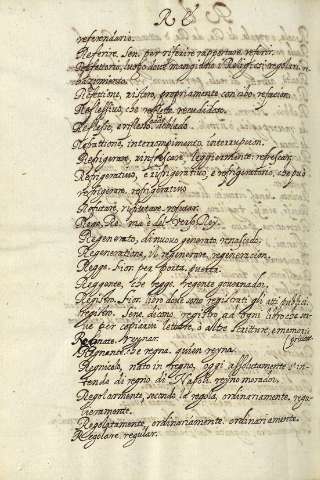 R E
referendario.
Referire, fior. per riferire rapportare, referir.
Refettorio, luogo dove mangiano i Religiosi regolari, re
Refettione, ristoro, propriamente con cibo, refacion.
Reflessivo, che
Reflesso, reflesso,
Refratione, interrompimento, interrupcion.
Refrigerare, rinfrescare leggiermente: refrescar.
Refrigerativo, e rifrigerativo, e refrigeratorio, che può
refrigerare, refrigerativo
Refutare, rifiutare, refusar.
Rege, Re
Regenerato, di nuovo generato, renascido.
Regeneratione, il regenerare, regeneracion.
Regge. fior. per porta, puerta.
Reggente, che regge, regente governador.
Registro. fior. libro dove sono registrati gli atti publici,
registro. Sene, dicono, registro, ad ogni libro che ser
ve per copiarvi lettere, o altre scritture, e memorie
Regnare. reynar.
Regnante che regna, quien reyna.
Regnicolo, nato in regno, oggi assolutamente s'in
tende di regno di Napoli. reyno morador.
Regolarmente, secondo la regola, ordinariamente, regu
larmente.
Regolatamente, ordinariamente. ordinariamente.
Regolare. regular.